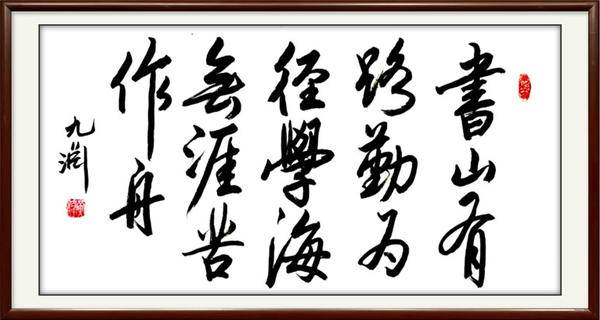 書山有
路勤为
徑學海
無涯苦
作舟
九淵